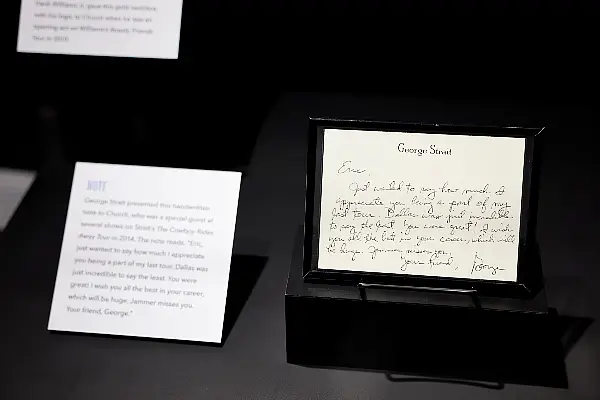 Hank Williams, Jr. gave this
with his logo, to Church when he was an
opening act on Williams's Rowdy Friends
Tour in 2010.
NOTE
George Strait presented this handwritten
note to Church, who was a special guest at
several shows on Strait's The Cowboy Rides
Away Tour in 2014. The note reads: "Eric,
just wanted to say how much I appreciate
you being a part of my last tour. Dallas was
just incredible to say the least. You were
great! I wish you all the best in your career,
which will be huge. Jammer misses you.
Your friend, George."
George Strait
Eric,
Just wanted to say how much I
appreciate you being a part of my
last tour. Dallas was just incredible
to say the least. You were great! I wish
you all the best in your career, which will
be huge. Jammer misses you.
Your friend, George